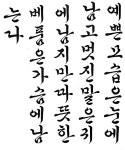 예쁜모습은눈에
남고멋진말은귀
에남지만따뜻한
베풂은가슴에남
는다